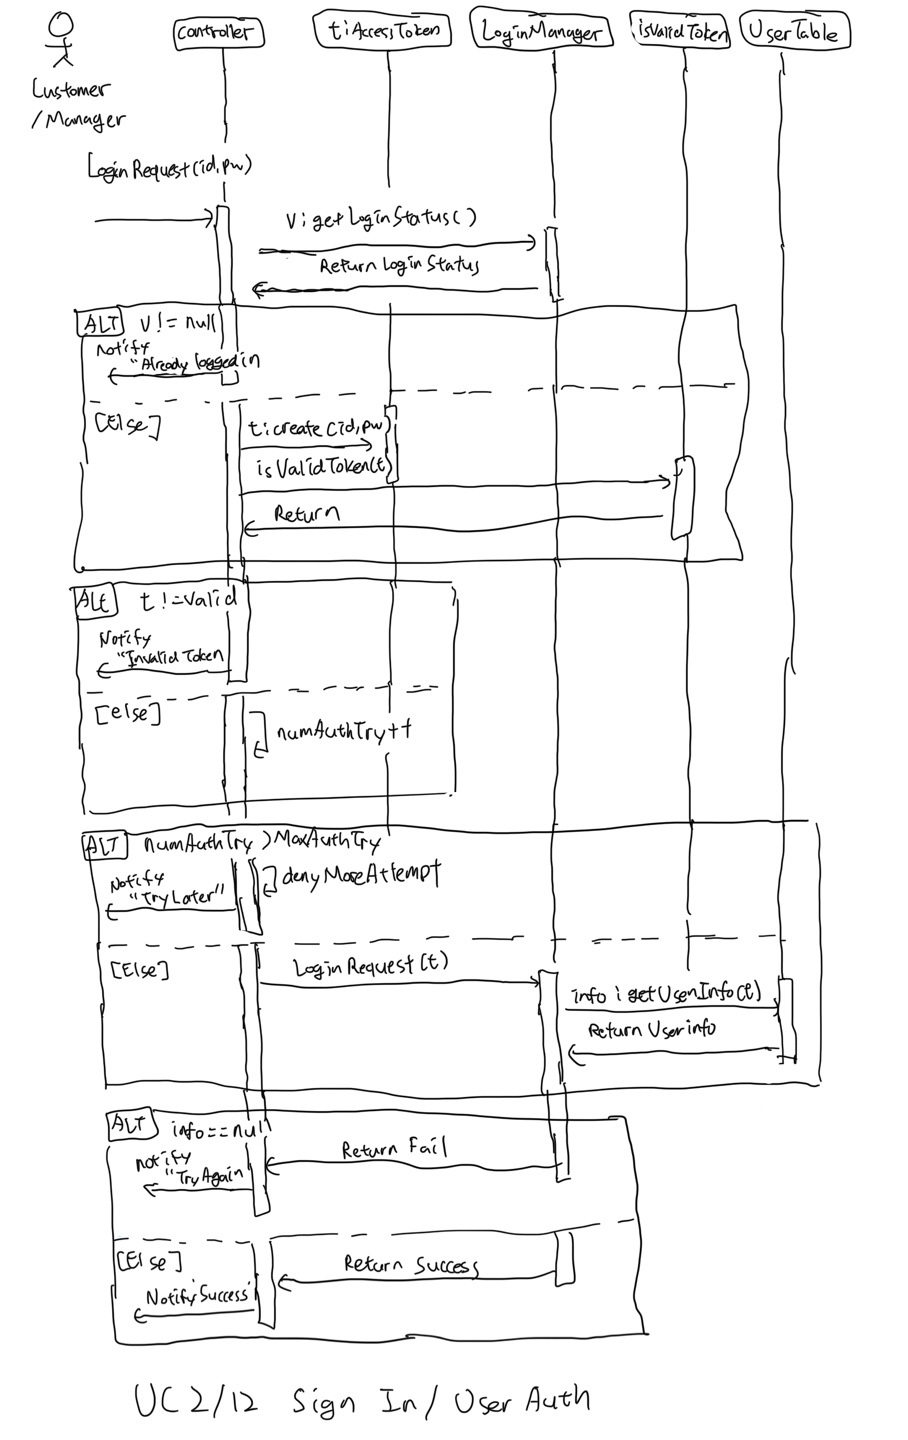 Controller
t:AccessToken
LoginManager
isValidToken
UserTable
Customer
/Manager
LoginRequest(id,pw)
V:getLoginStatus()
Return Login Status
ALT V!= null
Notify
"Already logged in
[Else]
t:create(id,pw)
isValidToken(t)
Return
ALt t!=Valid
Notify
"Invalid Token
[else]
numAuthTry++
ALT numAuthTry>MaxAuthTry
denyMoreAttempt
Notify
"TryLater"
[Else]
LoginRequest(t)
info:getUserInfo(t)
Return Userinfo
ALT info==null
Return Fail
notify
"TryAgain
[Else]
Return Success
Notify'Success'
UC2/12 Sign In/ User Auth